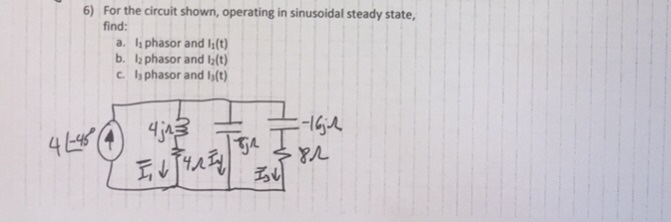 6) For the circuit shown, operating in sinusoidal steady state,
find:
a. I₁ phasor and I₁(t)
b. I₂ phasor and I₂(t)
c. I₃ phasor and I₃(t)
4∠-45°
4jΩ
4Ω
I₁↓
I₂↓
-16jΩ
8Ω
I₃↓